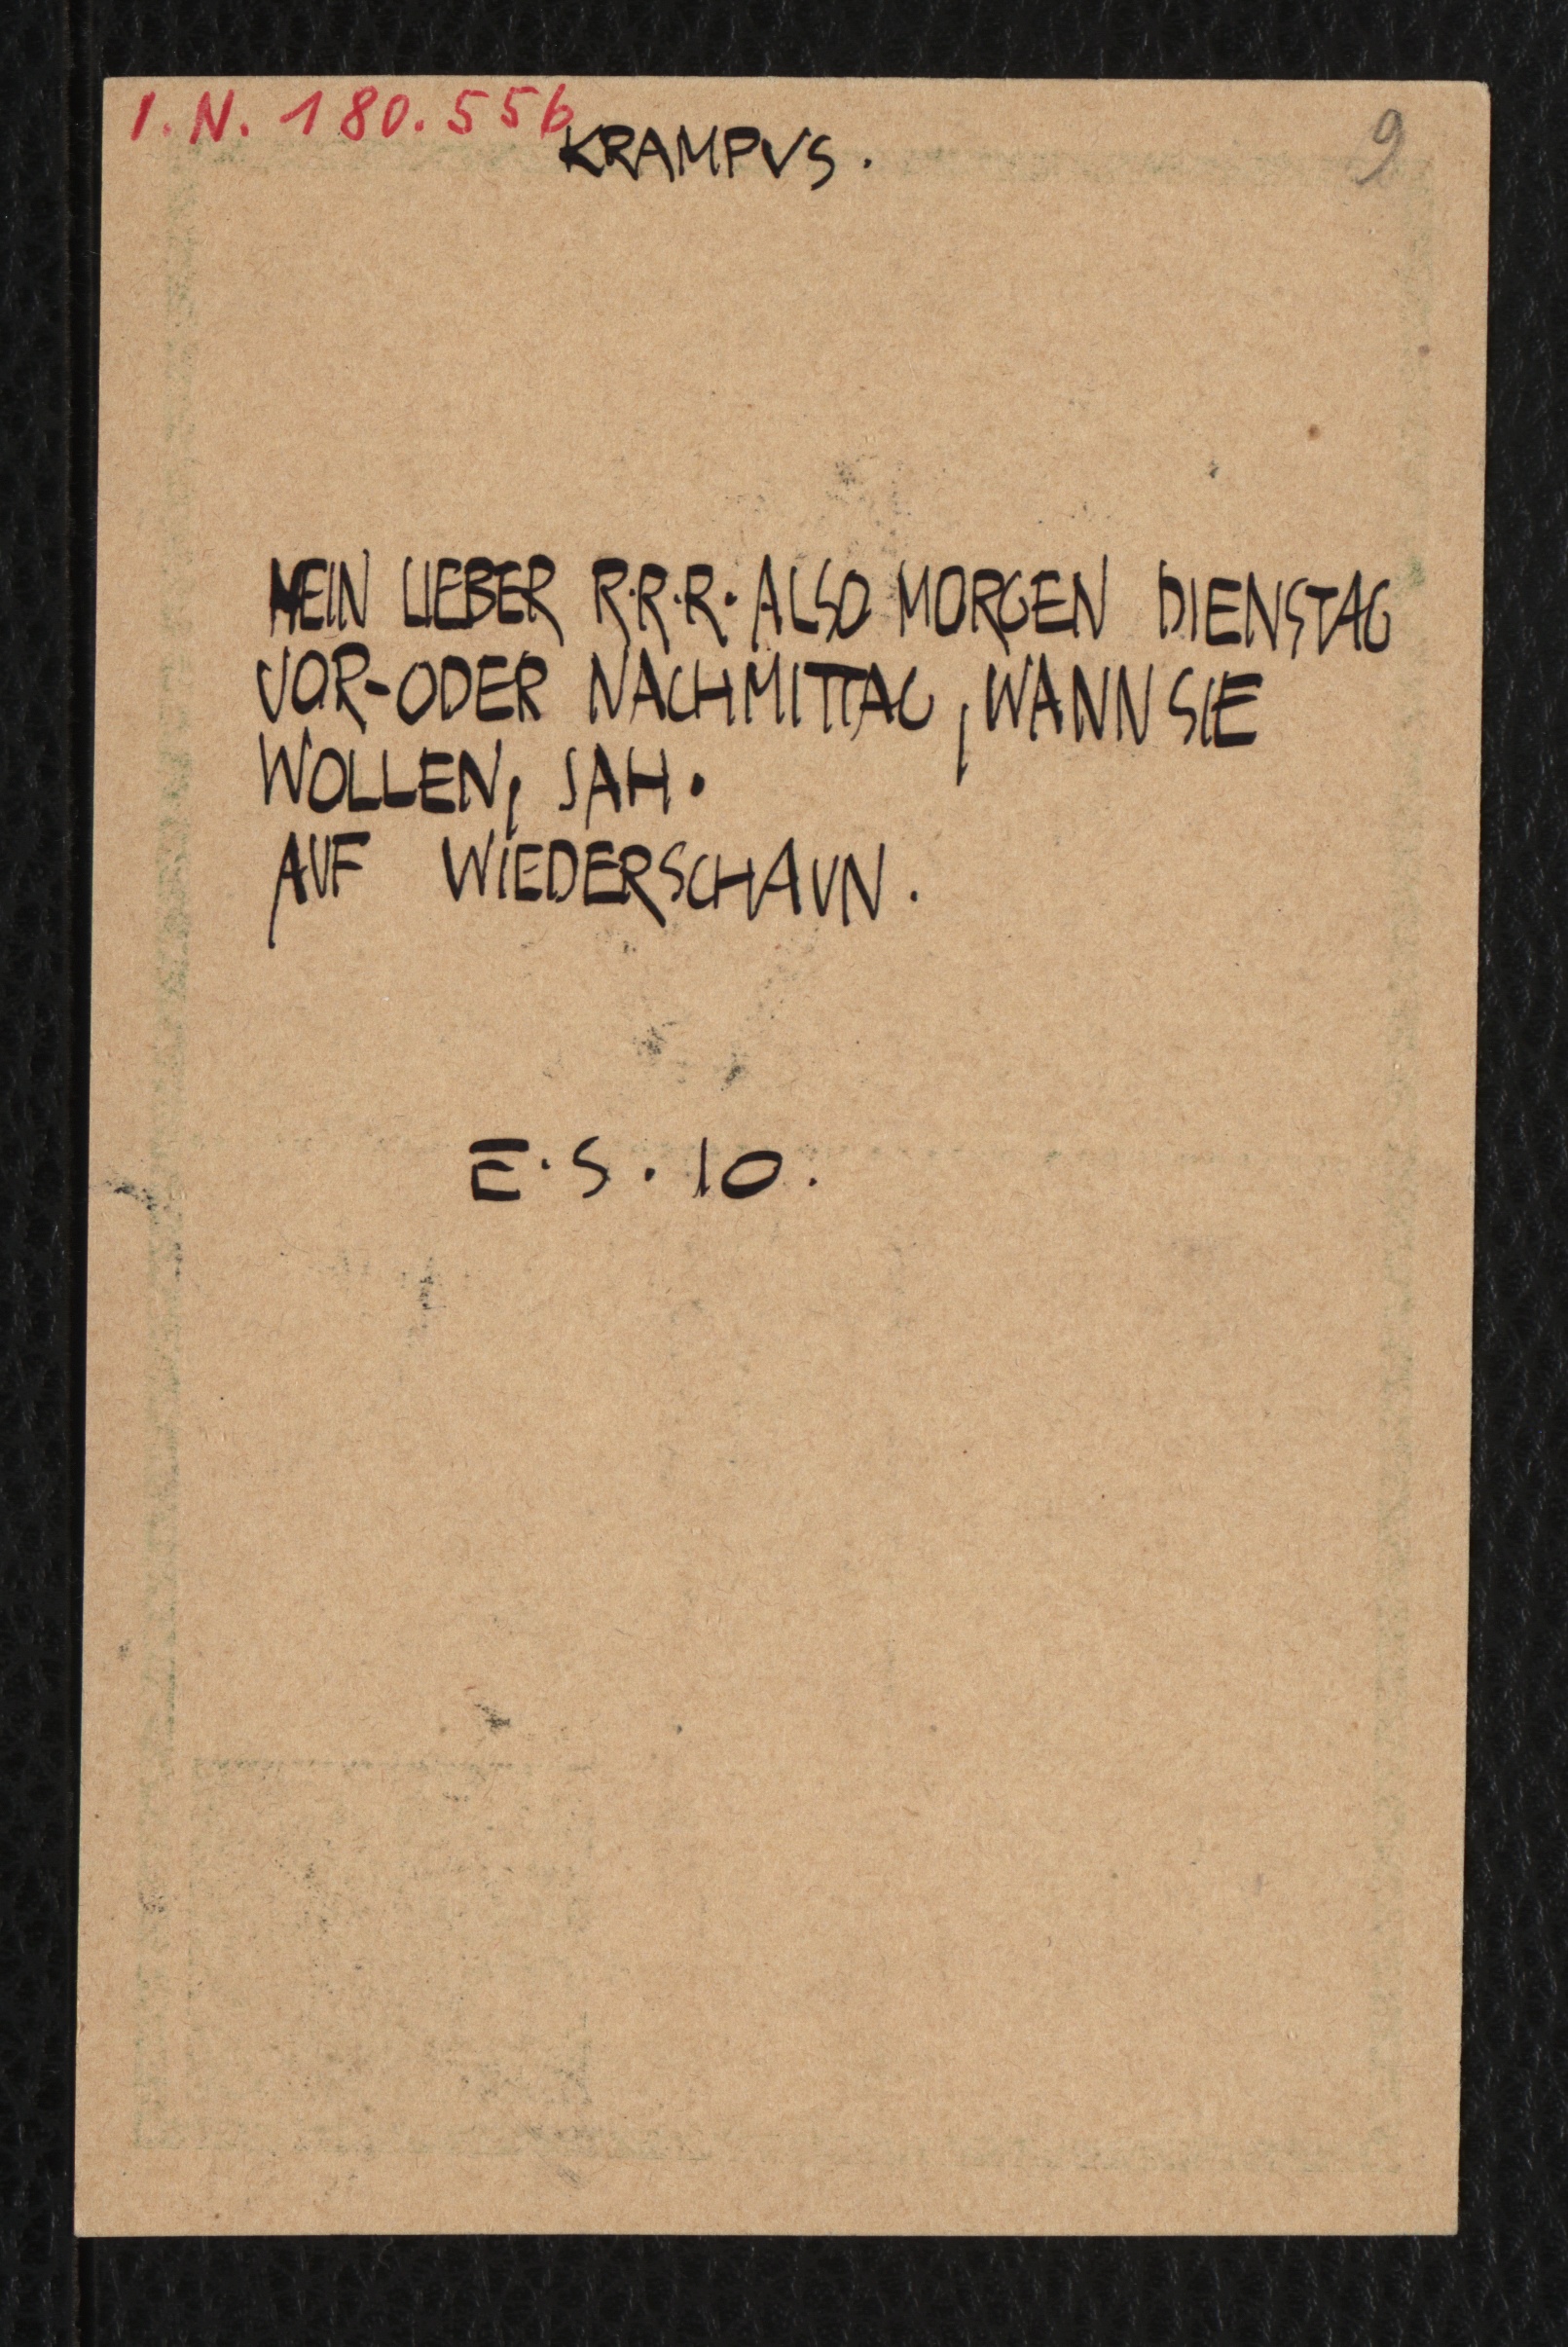 I.N. 180.556
KRAMPVS.
9
MEIN LIEBER R.R.R. ALSO MORGEN DIENSTAG
VOR-ODER NACHMITTAG, WANN SIE
WOLLEN, JAH.
AUF WIEDERSCHAUN.
E.S.10.